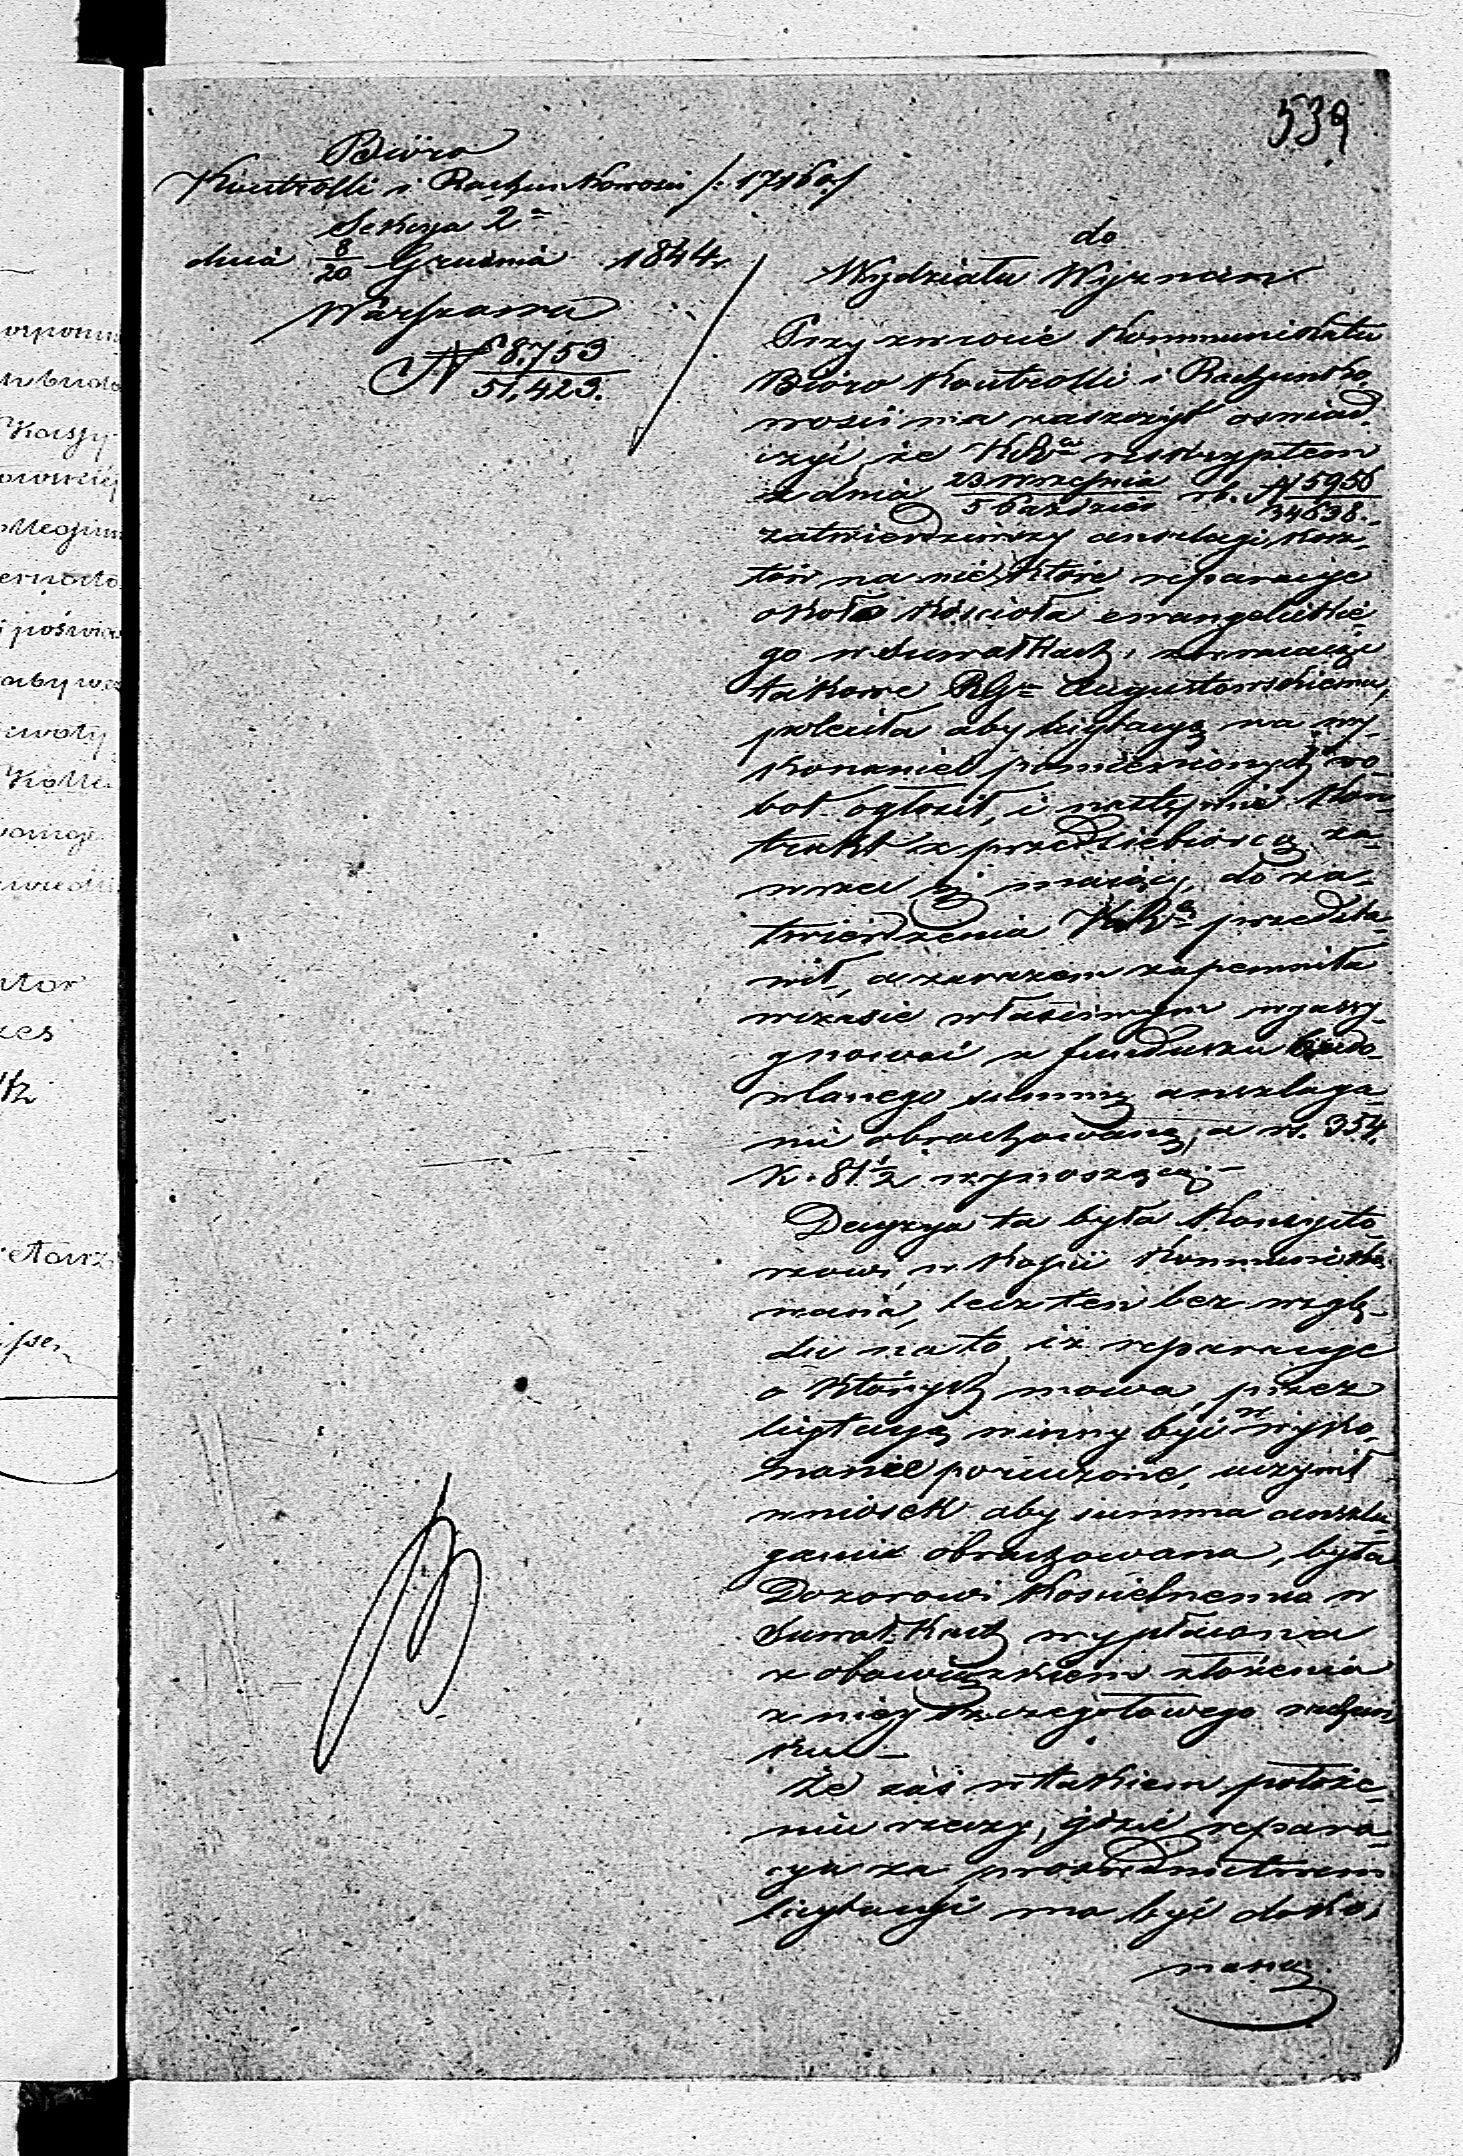 539
Biuro
Kontrolli i Rachunkowości /: 17161/
Sekcya 2ª
dnia 8/20 Grudnia 1844 r
Warszawa
N 8,753/51,423.
do
Wydziału Wyznań
Przy zwrocie Kommunikatu
Biuro Kontrolli i Rachunko-
wości ma zaszczyt oświad-
czyć, że KRª reskryptem
z dnia 23 Września/5 Paździer rb. N 15956/34638.
zatwierdziwszy anszlagi kosz-
tów na nie które reparacye
około Kościoła ewangelickie-
go w Suwałkach, zwracając
takowe RGº Augustowskiemu,
poleciła aby licytacyą na wy-
konanie pomienionych ro-
bot ogłosił, i następnie kon-
trakt z przedsiebiorcą za-
wrzeć się mający, do za-
twierdzenia KRª przedsta-
wił, a zarazem zapewniła
w czasie właściwym wyassy-
gnować z funduszu budo-
wlanego summę anszlaga-
mi obrachowaną, a rs. 354.
k. 81½ wynoszącą.
Decyzya ta była Konsysto-
rzowi w kopii kommuniko-
waną, lecz ten bez wzglę-
du na to, iż reparacye
o których mowa, przez
licytacyą winny być w wyko-
nanie poruczone, uczynił
wniosek aby summa anszla-
gami obrachowana, była
Dozorowi Kościelnemu w
Suwałkach wypłacona
z obowiązkiem złożenia
z niey szczegółowego rachun-
ku.
Że zaś w takiem położe-
niu rzeczy, gdzie repara-
cya za pośrednictwem
licytacyi ma być doko-
naną